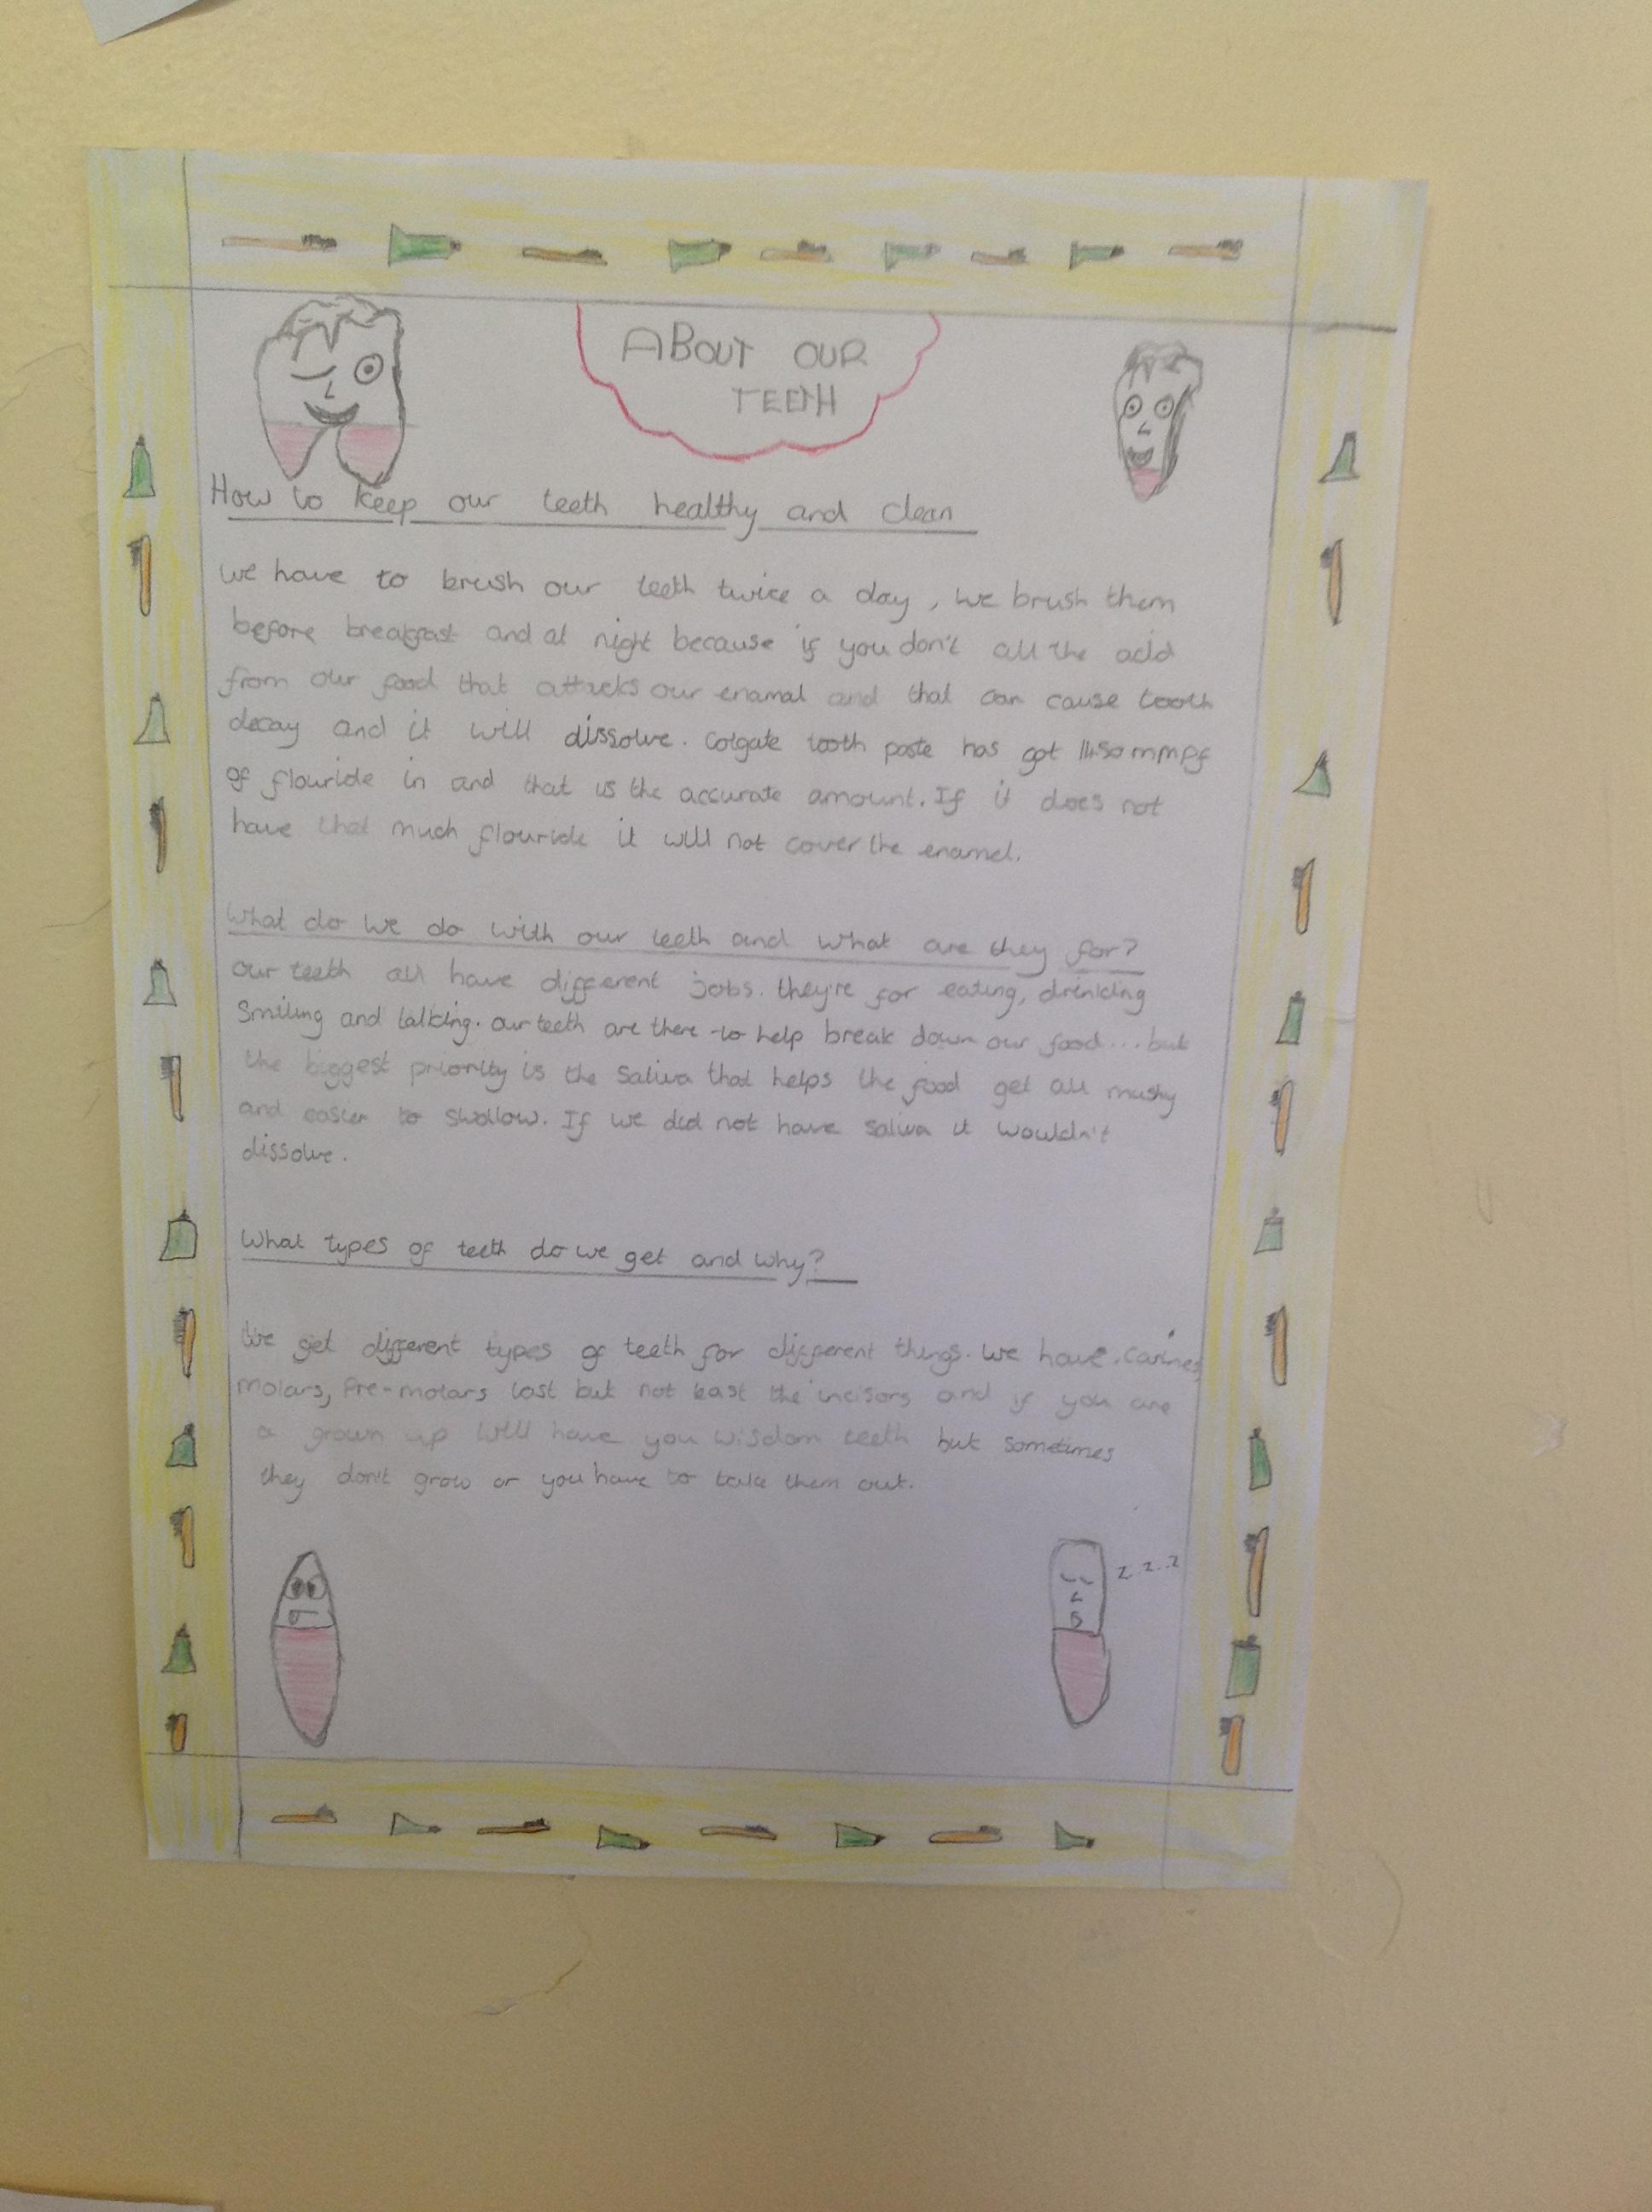 ABOUT OUR
TEETH
How to keep our teeth healthy and clean
we have to brush our teeth twice a day, we brush them
before breakfast and at night because if you don't all the acid
from our food that attacks our enamal and that can cause tooth
decay and it will dissolve. Colgate tooth paste has got
of flouride in and that is the accurate amount. If it does not
have that much flouride it will not cover the enamel.
What do we do with our teeth and what are they for?
our teeth all have different jobs. they're for eating, drinking
Smiling and talking. our teeth are there to help break down our food...but
the biggest priority is the saliva that helps the food get all mushy
and easier to swollow. If we did not have saliva it wouldn't
dissolve.
What types of teeth do we get and why?
We get different types of teeth for different things. we have
molars, Pre-molars last but not least the incisors and if you are
a grown up will have you wisdom teeth but sometimes
they don't grow or you have to take them out.
z..z..z